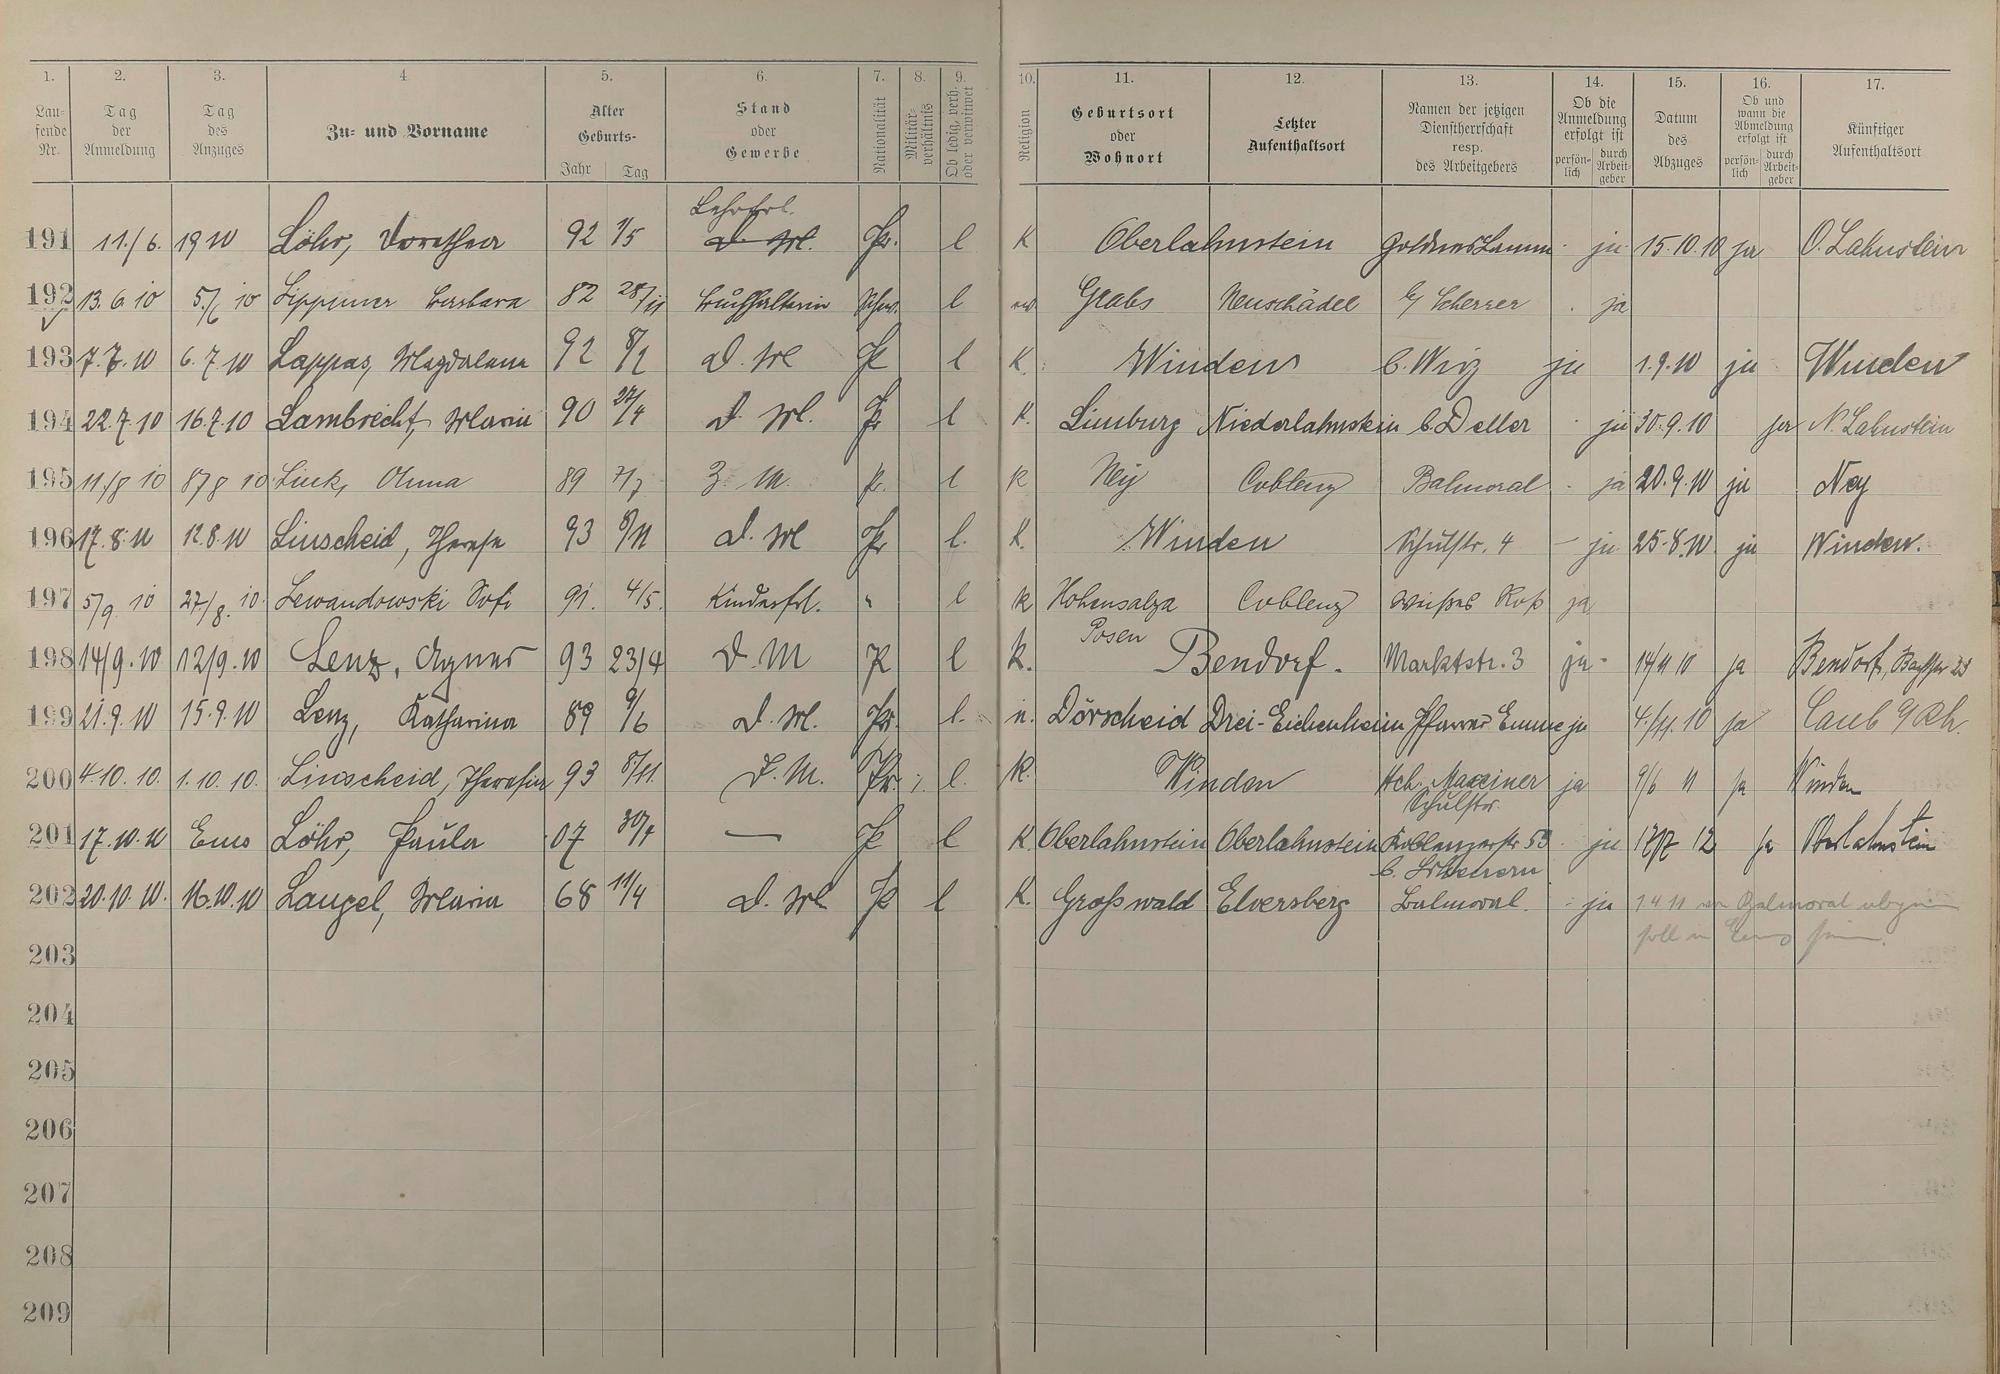 1. 2. 3. 4. 5. 6. 7. 8. 9. 10. 11. 12. 13. 14. 15. 16. 17.
Lau-fende Nr. Tag der Anmeldung Tag des Anzuges Zu- und Vorname Alter Geburts- Jahr Tag Stand oder Gewerbe Nationalität Militär-verhältnis Ob ledig, verh. oder verwitwet Religion Geburtsort oder Wohnort Letzter Aufenthaltsort Namen der jetzigen Dienstherrschaft resp. des Arbeitgebers Ob die Anmeldung erfolgt ist persön-lich durch Arbeit-geber Datum des Abzuges Ob und wann die Abmeldung erfolgt ist persön-lich durch Arbeit-geber Künftiger Aufenthaltsort
Lehrfrl.
191 11./6. 19 10 Löhr, Dorothea 92 1/5 D. M. Pr. l K Oberlahnstein Goldnes Lamm - ja 15.10.10 ja O. Lahnstein
192 13.6.10 5./6 10 Lippuner Barbara 82 28/11 Buchhalterin Schw. l Grabs Neuschâdel b/ Scherrer . ja
193 7.7.10 6.7.10 Lappas, Magdalena 92 D. M P l K. Winden b. Wirz ja 1.9.10 ja Winden
194 22.7.10 16.7.10 Lambrecht, Maria 90 27/4 D. M. Pr l K. Limburg Niederlahnstein b. Deller - ja 30.9.10 ja N. Lahnstein
195 11./8 10 8/8 10 Link, Anna 89 Z. M. Pr. l K Ney Coblenz Balmoral - ja 20.9.10 ja Ney
196 17.8.10 12.8.10 Linscheid, Therese 93 8/11 D. M Pr l. K. Winden Schulstr. 4 - ja 25.8.10 ja Winden.
197 5/9 10 27/8. 10. Lewandowski Sofi 91. 4/5. Kinderfrl. " l K Hohensalza Coblenz weißes Roß ja
Posen
198 14/9.10 12/9.10 Lenz, Agnes 93 23/4 D. M P l k. Bendorf. Marktstr. 3 ja - 14/11 10 ja Bendorf,
199 21.9.10 15.9.10 Lenz, Katharina 89 9/6 D. M. Pr. l. Dörscheid Drei-Eichenheim Pfarrer Emme ja 4./11. 10 ja Caub a/Rh.
200 4.10.10. 1.10.10. Linscheid, Theresia 93 8/11. D. M. Pr. l. K. Winden Ach. Maxeiner ja 9/6 11 ja Winden
Schulstr.
201 17.10.10 Ems Löhr, Paula 07 30/4 — P l K. Oberlahnstein Oberlahnstein Koblenzerstr 53 - ja 12 ja Oberlahnstein
b.
202 20.10.10. 16.10.10 Langel, Maria 68 11/4 D. M P l K. Großwald Elversberg Balmoral. - ja 1.4.11 von Balmoral
soll in Ems sein.
203
204
205
206
207
208
209